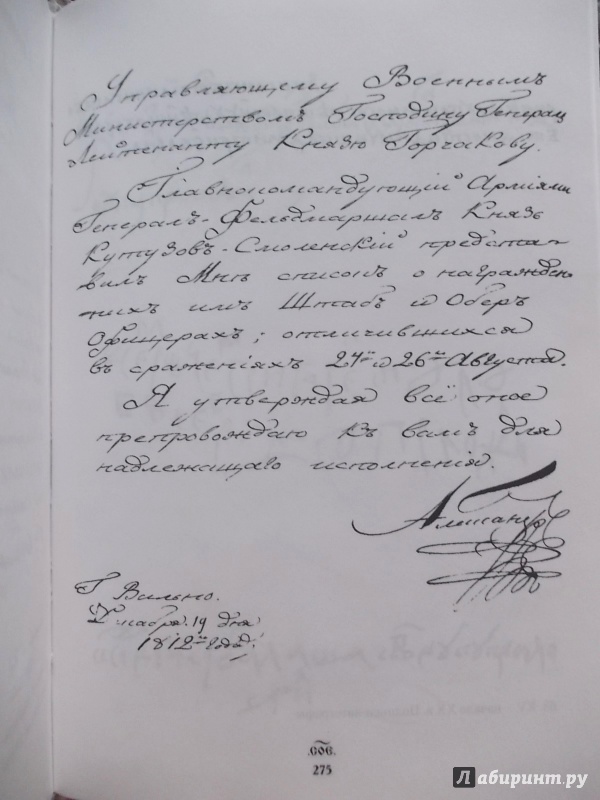 Управляющему Военнымъ
Министерствомъ Господину Генерал
Лейтенанту Князю Горчакову.
Главнокомандующій Арміями
Генералъ-Фельдмаршалъ Князь
Кутузовъ-Смоленскій предста-
вилъ Мнѣ списокъ о награжден-
ныхъ имъ Штабъ и Оберъ
Офицерахъ; отличившихся
въ сраженіяхъ 24го и 26го Августа.
Я утверждая всё оное
препровождаю къ вамъ для
надлежащаго исполненія.
Александръ
Г. Вильно.
Декабря 19 дня
1812го года.
СОС.
275
Лабиринт.ру